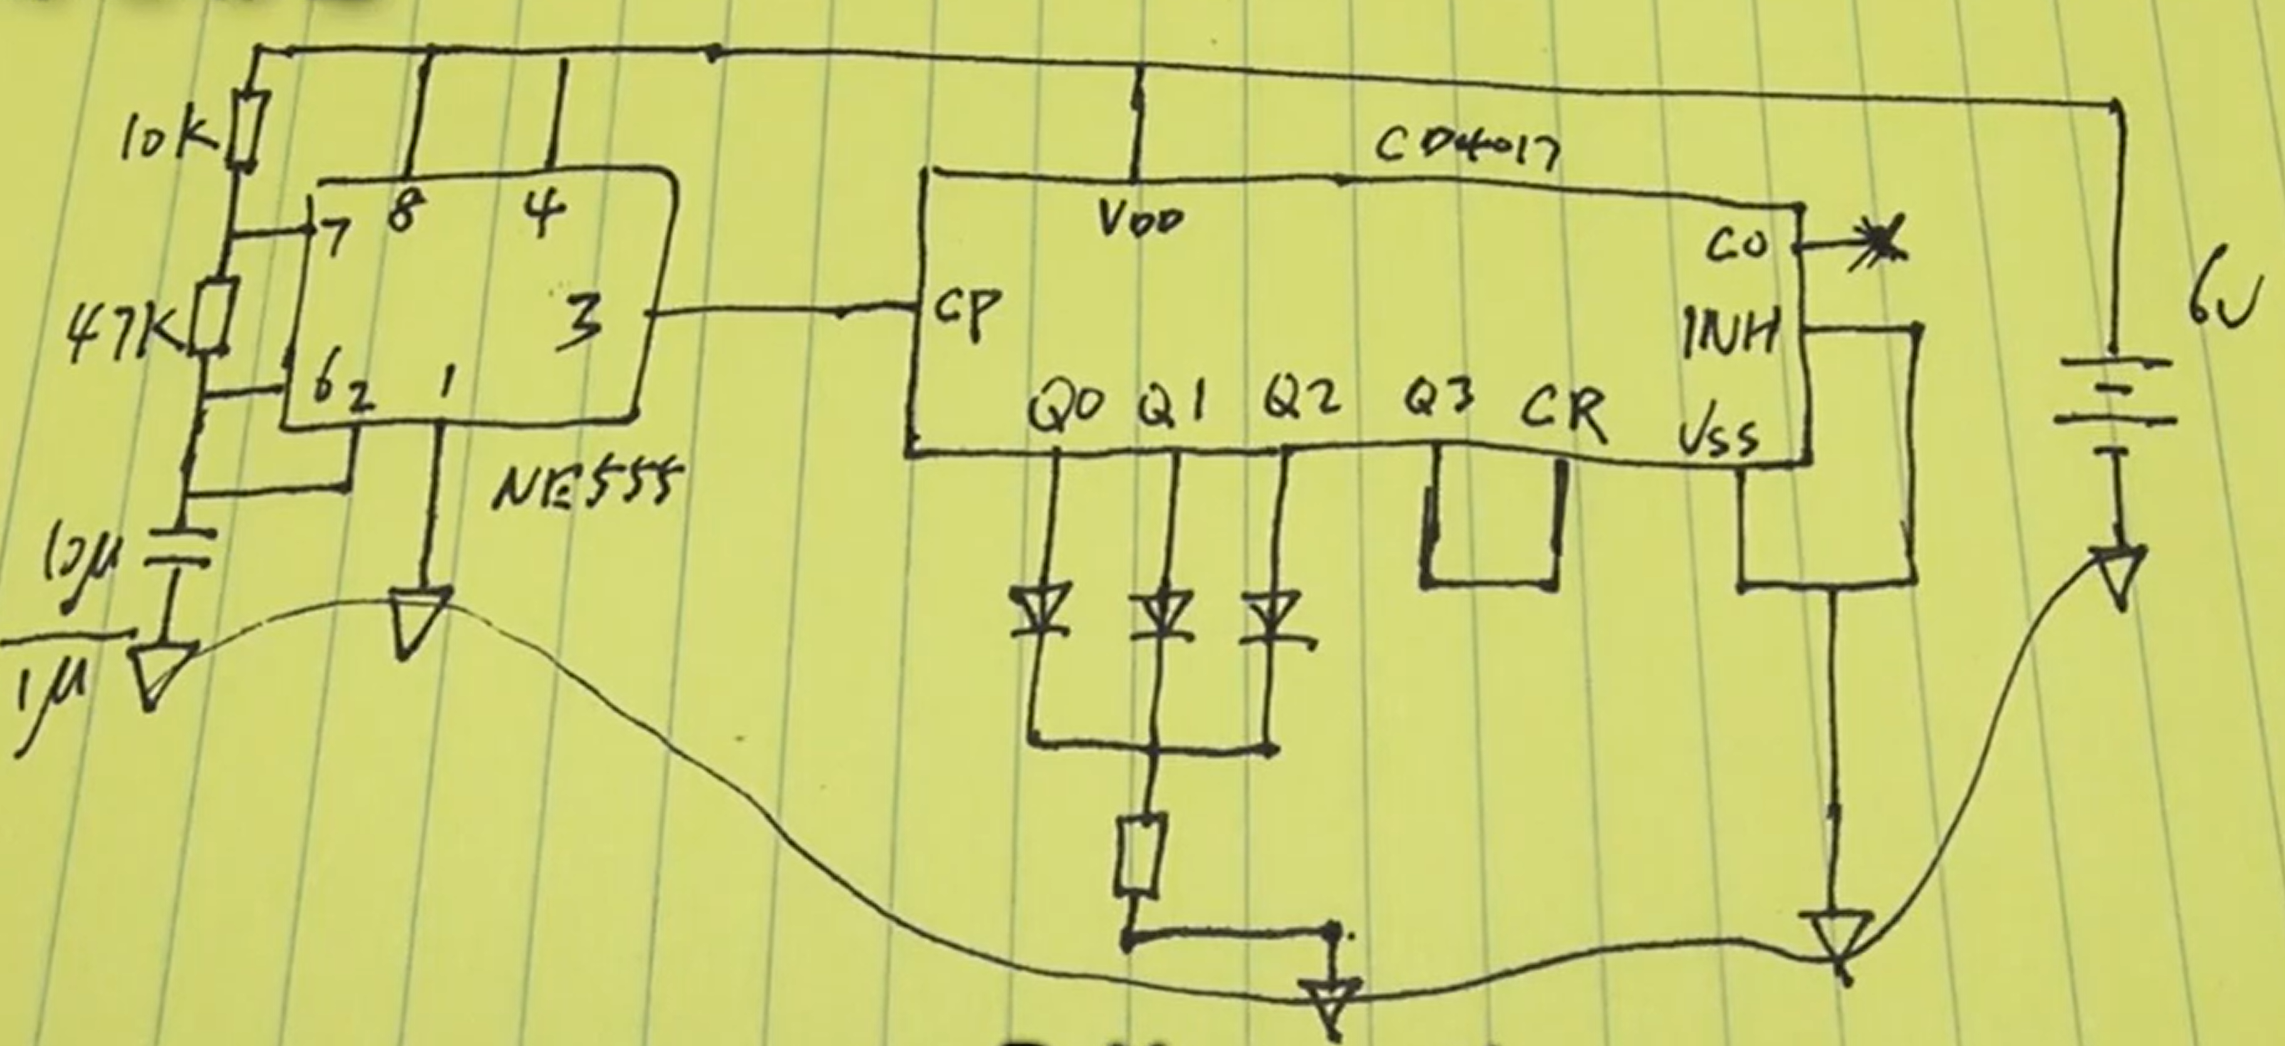 10K
47K
10μ
1μ
7 8 4
3
6 2 1
NE555
CD4017
VDD
CO
CP
INH
Q0 Q1 Q2 Q3 CR
VSS
6V